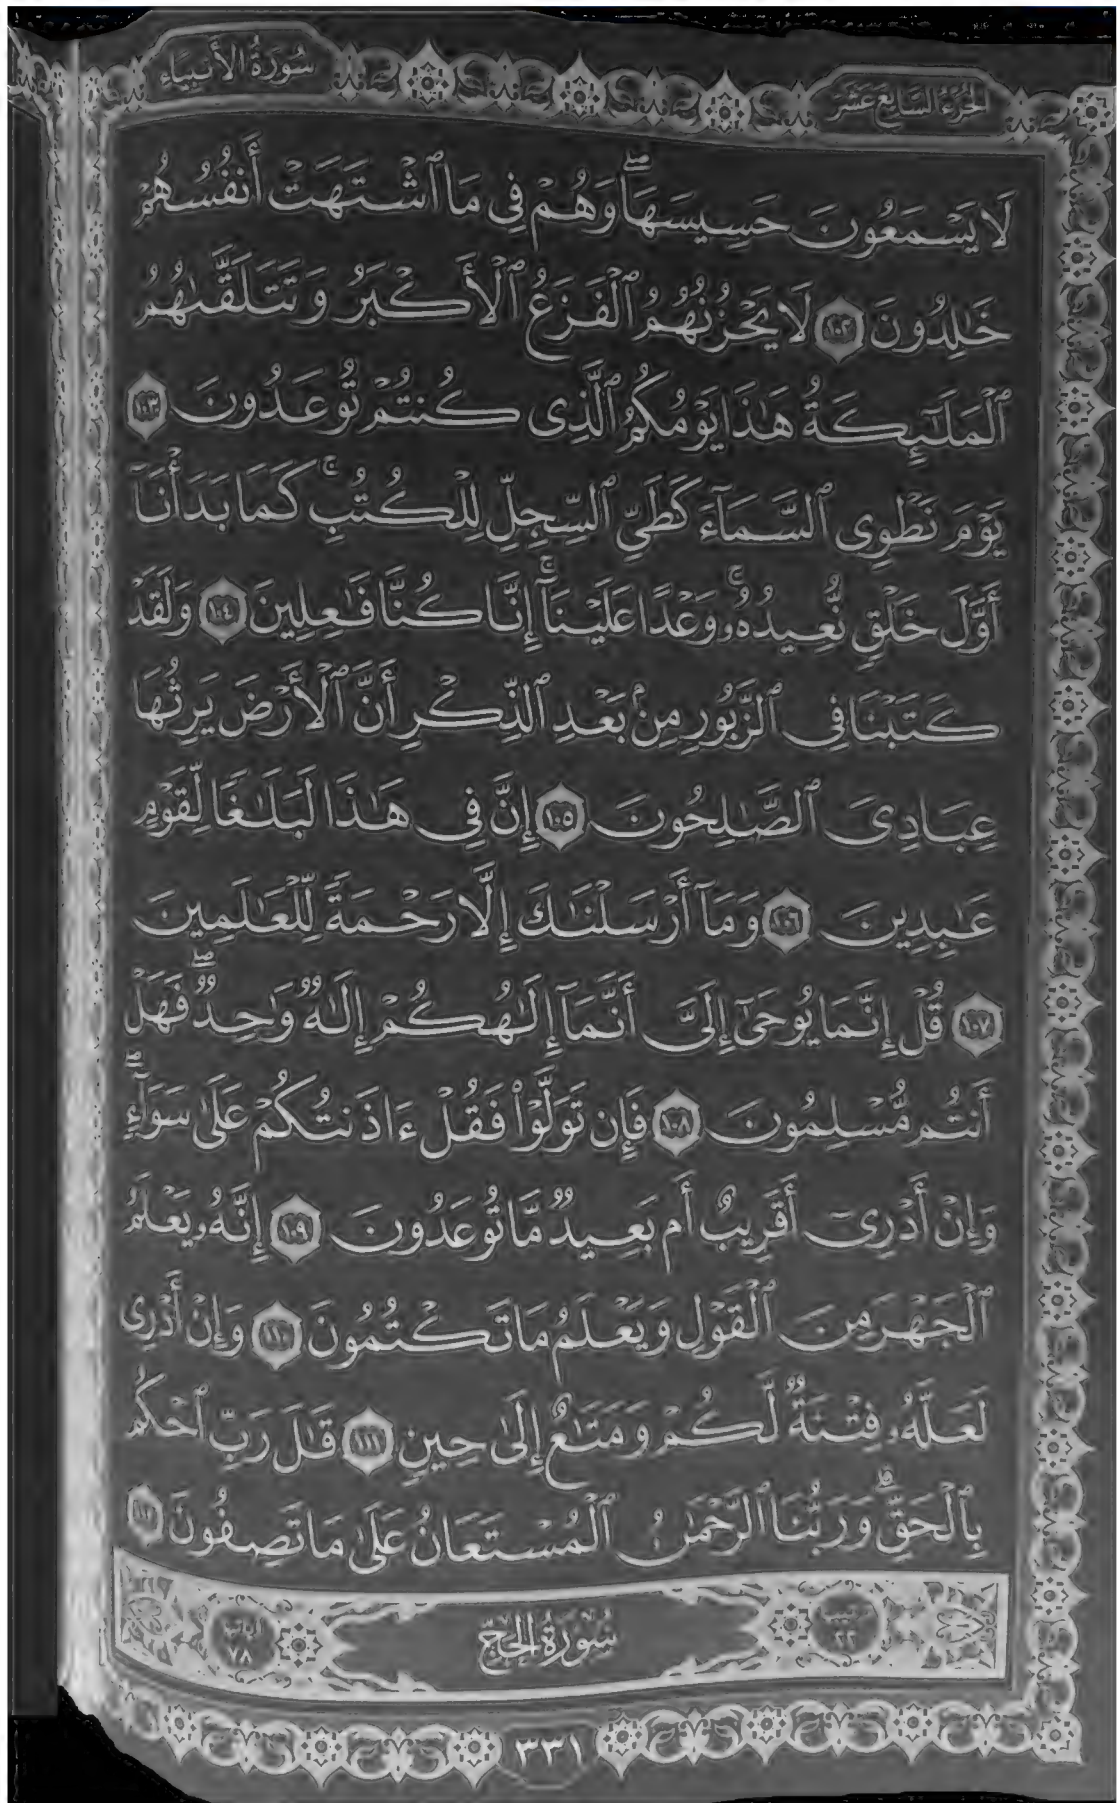 سُورَةُ الأَنبِيَاء
الجُزْءُ السَّابِعَ عَشَرَ
لَا يَسْمَعُونَ حَسِيسَهَاۖ وَهُمْ فِى مَا ٱشْتَهَتْ أَنفُسُهُمْ
خَٰلِدُونَ ١٠٢ لَا يَحْزُنُهُمُ ٱلْفَزَعُ ٱلْأَكْبَرُ وَتَتَلَقَّىٰهُمُ
ٱلْمَلَٰٓئِكَةُ هَٰذَا يَوْمُكُمُ ٱلَّذِى كُنتُمْ تُوعَدُونَ ١٠٣
يَوْمَ نَطْوِى ٱلسَّمَآءَ كَطَىِّ ٱلسِّجِلِّ لِلْكُتُبِۚ كَمَا بَدَأْنَآ
أَوَّلَ خَلْقٍ نُّعِيدُهُۥۚ وَعْدًا عَلَيْنَآۚ إِنَّا كُنَّا فَٰعِلِينَ ١٠٤ وَلَقَدْ
كَتَبْنَا فِى ٱلزَّبُورِ مِنۢ بَعْدِ ٱلذِّكْرِ أَنَّ ٱلْأَرْضَ يَرِثُهَا
عِبَادِىَ ٱلصَّٰلِحُونَ ١٠٥ إِنَّ فِى هَٰذَا لَبَلَٰغًا لِّقَوْمٍ
عَٰبِدِينَ ١٠٦ وَمَآ أَرْسَلْنَٰكَ إِلَّا رَحْمَةً لِّلْعَٰلَمِينَ
١٠٧ قُلْ إِنَّمَا يُوحَىٰٓ إِلَىَّ أَنَّمَآ إِلَٰهُكُمْ إِلَٰهٌ وَٰحِدٌۖ فَهَلْ
أَنتُم مُّسْلِمُونَ ١٠٨ فَإِن تَوَلَّوْا۟ فَقُلْ ءَاذَنتُكُمْ عَلَىٰ سَوَآءٍۖ
وَإِنْ أَدْرِىٓ أَقَرِيبٌ أَم بَعِيدٌ مَّا تُوعَدُونَ ١٠٩ إِنَّهُۥ يَعْلَمُ
ٱلْجَهْرَ مِنَ ٱلْقَوْلِ وَيَعْلَمُ مَا تَكْتُمُونَ ١١٠ وَإِنْ أَدْرِى
لَعَلَّهُۥ فِتْنَةٌ لَّكُمْ وَمَتَٰعٌ إِلَىٰ حِينٍ ١١١ قَٰلَ رَبِّ ٱحْكُم
بِٱلْحَقِّۗ وَرَبُّنَا ٱلرَّحْمَٰنُ ٱلْمُسْتَعَانُ عَلَىٰ مَا تَصِفُونَ ١١٢
ترتيبها ٢٢ سُورَةُ الحَجّ آياتها ٧٨
٣٣١